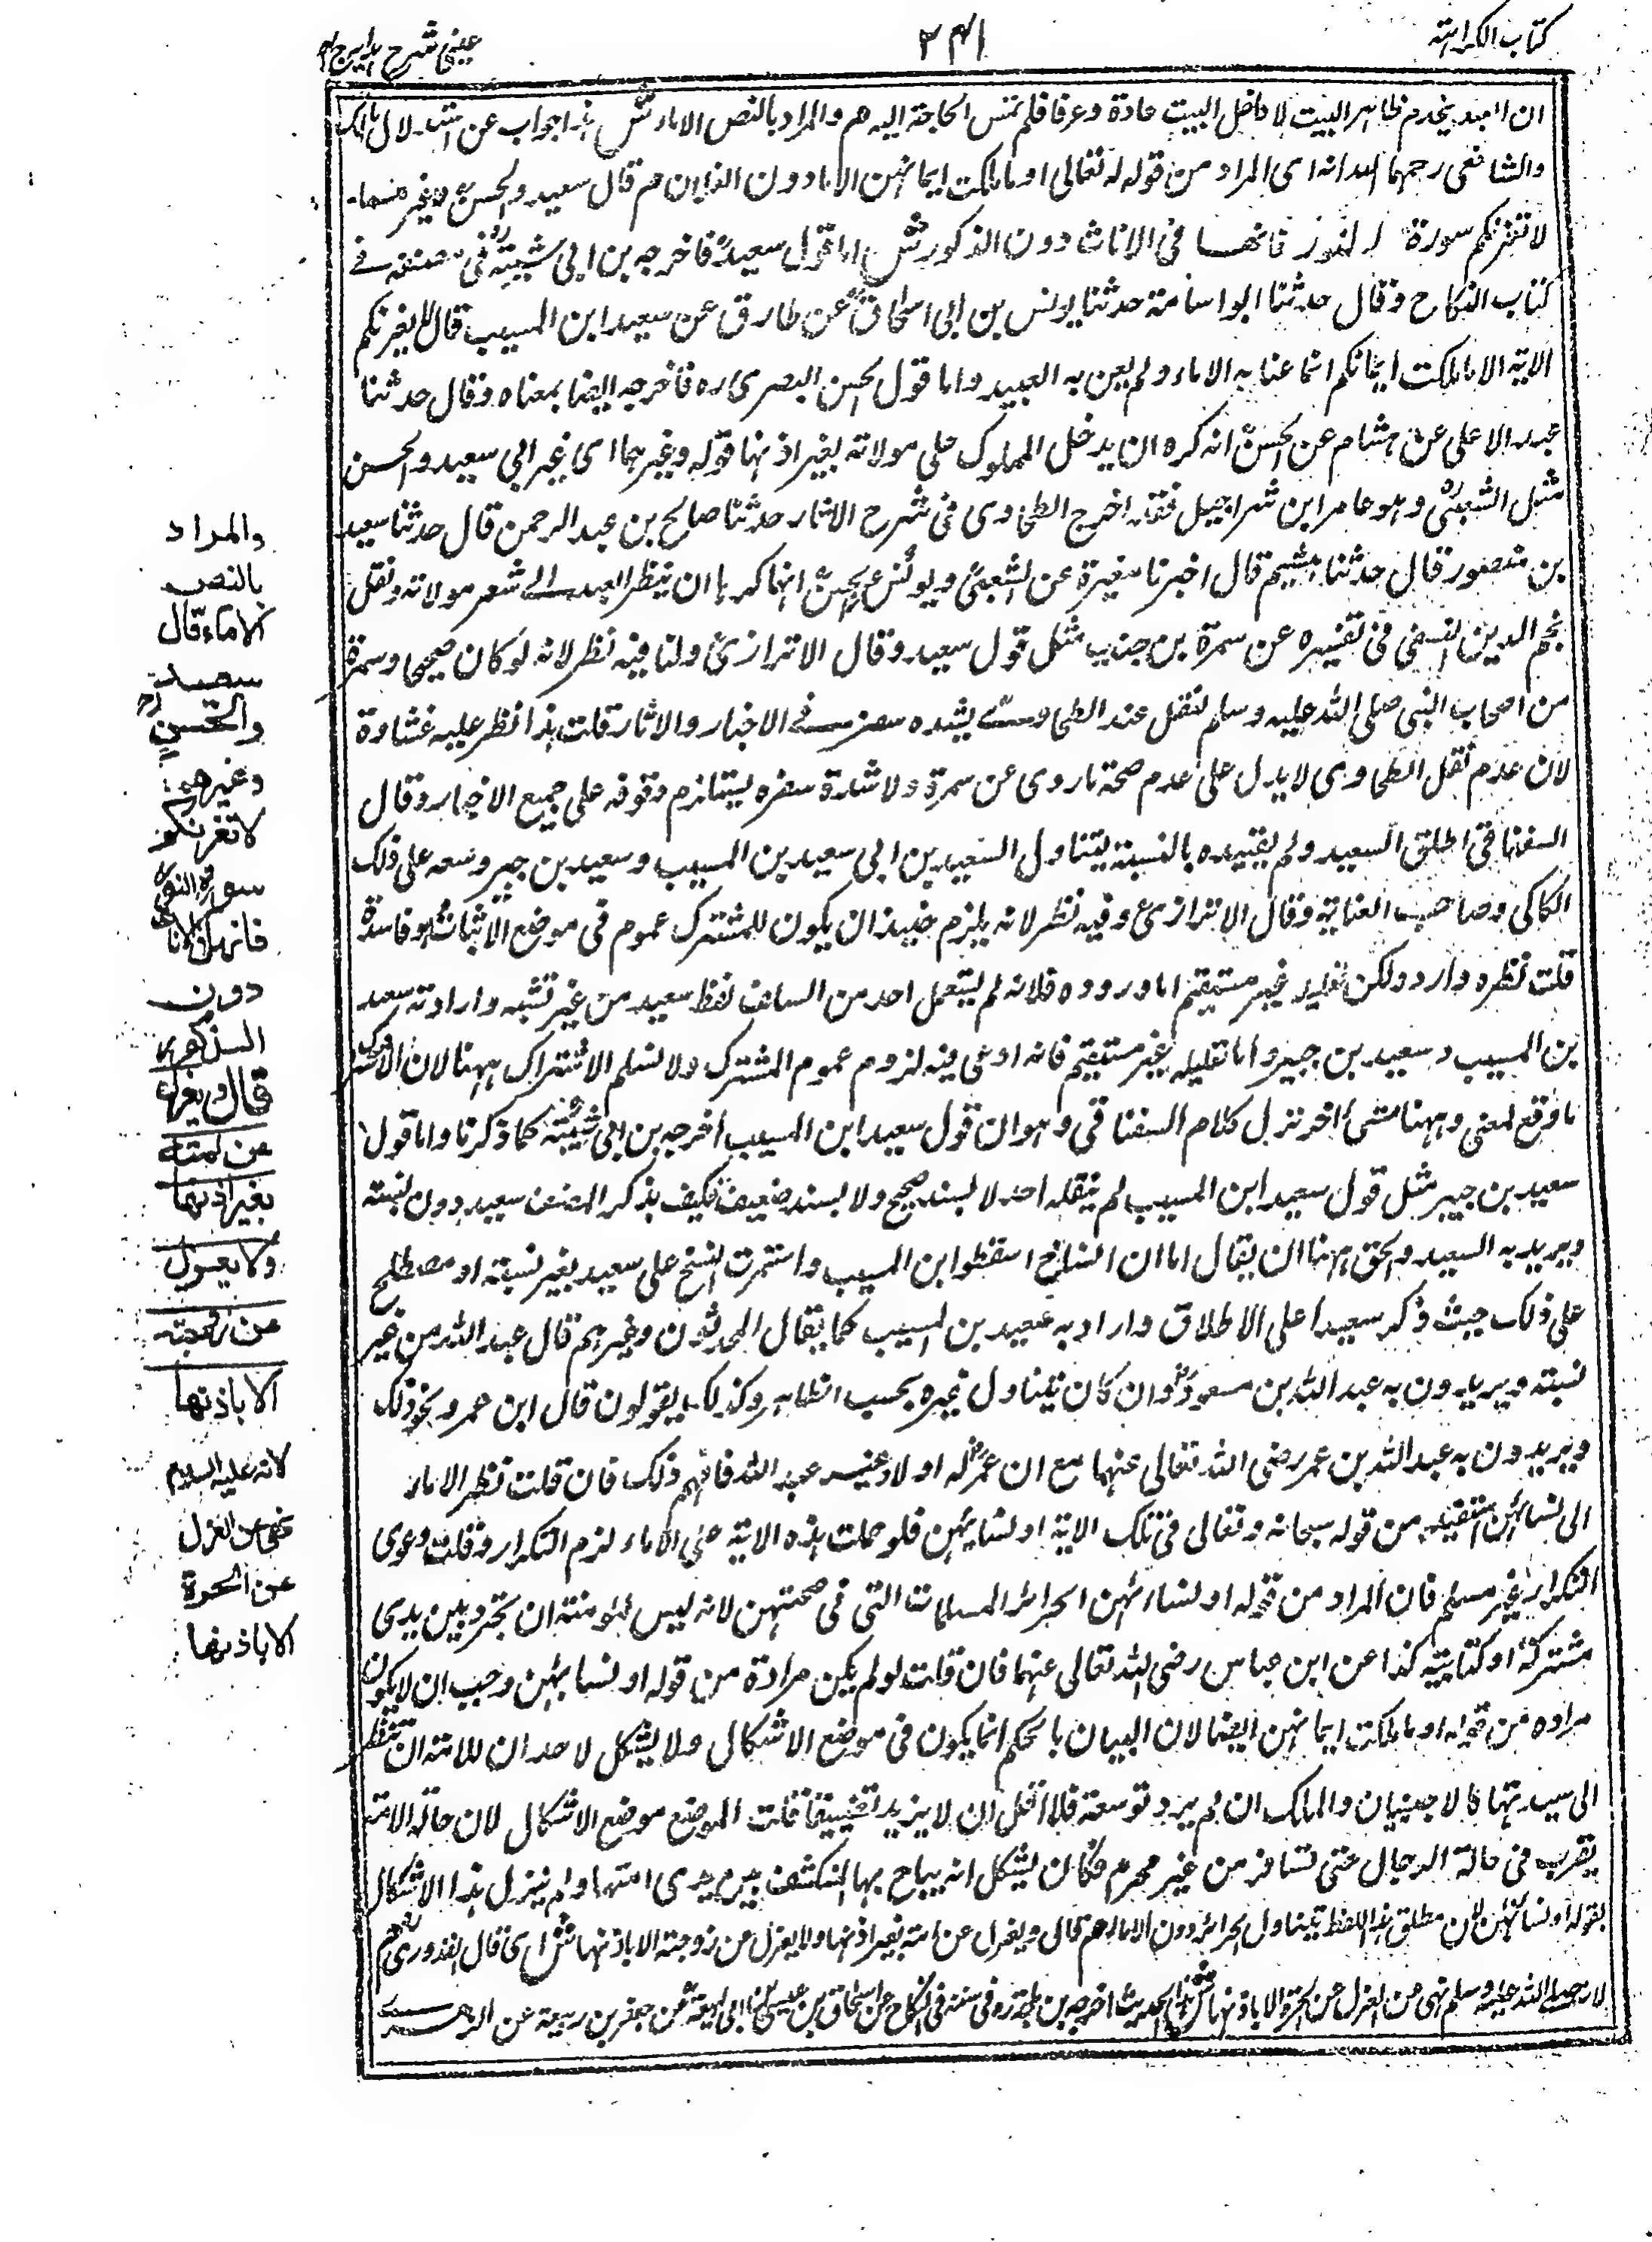 كتاب الكراهية
٢٤١
عيني شرح هدايه ج ٤
ان العبد يخدم ظاهر البيت لا داخل البيت عادة وعرفا فلم تمس الحاجة اليه هم والمراد بالنص الاماء ش هذا جواب عن استدلال مالك
والشافعي رحمهما الله انه اى المراد من قوله تعالى او ما ملكت ايمانهن الاماء دون العبد م قال سعيد والحسن وغيرهما
لا تغرنكم سورة النور فانها فى الاناث دون الذكور ش اما قول سعيد فاخرجه بن ابى شيبة فى مصنفه فے
كتاب النكاح وقال حدثنا ابو اسامة حدثنا يونس بن ابى اسحاق عن طارق عن سعيد ابن المسيب قال لا يغرنكم
الاية الا ما ملكت ايمانكم انما عنا به الاماء ولم يعن به العبيد واما قول الحسن البصرى ره فاخرجه ايضا بمعناه وقال حدثنا
عبد الاعلى عن هشام عن الحسن انه كره ان يدخل المملوك على مولاته بغير اذنها قوله وغيرهما اى غير ابى سعيد والحسن
مثل الشعبى وهو عامر ابن شراحيل فقد اخرج الطحاوى فى شرح الاثار حدثنا صالح بن عبد الرحمن قال حدثنا سعيد
بن منصور قال حدثنا هشيم قال اخبرنا مغيرة عن الشعبى ويونس عن الحسن انهما كرها ان ينظر العبد الى شعر مولاته ونقل
نجم الدين النسفى فى تفسيره عن سمرة بن جندب مثل قول سعيد وقال الاترازى ولنا فيه نظر لانه لو كان صحيحا وسمرة
من اصحاب النبى صلى الله عليه وسلم لنقل عند الطحاوى لشدة سفره فى الاخبار والاثار قلت هذا نظر عليه غشاوة
لان عدم نقل الطحاوى لا يدل على عدم صحة ما روى عن سمرة ولا شدة سفره يستلزم وقوفه على جميع الاخبار وقال
السغناقى اطلق السعيد ولم يقيده بالنسبة ليتناول السعيدين ابى سعيد بن المسيب وسعيد بن جبير وتبعه على ذلك
الكاكى وصاحب العناية وقال الاترازى وفيه نظر لانه يلزم حينئذ ان يكون للمشترك عموم فى موضع الاثبات وهو فاسد
قلت نظره وارد ولكن تعليله غير مستقيم اما وروده فلانه لم يستعمل احد من السلف لفظ سعيد من غير نسبته وارادته سعيد
بن المسيب وسعيد بن جبير واما تعليله غير مستقيم فانه ادعى فيه لزوم عموم المشترك ولا نسلم الاشتراك ههنا لان المشترك
ما وقع لمعنى وههنا شئ اخر نزل كلام السغناقى وهو ان قول سعيد ابن المسيب اخرجه بن ابى شيبة كما ذكرنا واما قول
سعيد بن جبير مثل قول سعيد ابن المسيب لم ينقله احد لا بسند صحيح ولا بسند ضعيف فكيف يذكر المصنف سعيد دون نسبته
ويريد به السعيد والحق ههنا ان يقال اما ان النساخ اسقطوا ابن المسيب واستمرت النسخ على سعيد بغير نسبته او مصطلح
على ذلك حيث ذكر سعيدا على الاطلاق واراد به سعيد بن المسيب كما يقال المحدثون وغيرهم قال عبد الله من غير
نسبته ويريدون به عبد الله بن مسعود وان كان تناول غيره بحسب الظاهر وكذلك يقولون قال ابن عمر ونحو ذلك
ويريدون به عبد الله بن عمر رضى الله تعالى عنهما مع ان عمر له اولاد غير عبد الله فافهم ذلك فان قلت نظر الاماء
الى نسائهن استفيد من قوله سبحانه وتعالى فى تلك الاية او نسائهن فلو حملت هذه الاية على الاماء لزم التكرار وقلت دعوى
التكرار غير مسلم فان المراد من قوله او نسائهن الحرائر المسلمات التى فى صحبتهن لانه ليس لمؤمنة ان تتجرد بين يدى
مشتركة او كتابية كذا عن ابن عباس رضى الله تعالى عنهما فان قلت لو لم يكن مرادة من قوله او نسائهن وجب ان لا يكون
مراده من قوله او ما ملكت ايمانهن ايضا لان البيان بالحكم انما يكون فى موضع الاشكال ولا يشكل لاحد ان للامة ان تنظر
الى سيدتها كالاجنبيان والملك ان لم يزد توسعة فلا اقل ان لا يزيد تضييقا قلت الموضع موضع الاشكال لان حالة الامة
يقرب فى حالة الرجال حتى تسافر من غير محرم فكان يشكل انه يباح بها التكشف بين يدى امتها ولم يزل هذا الاشكال
بقوله او نسائهن لان مطلق هذا اللفظ يتناول الحرائر دون الاماء هم قال ويعزل عن امته بغير اذنها ولا يعزل من زوجته الا باذنها ش اى قال القدورى م
لانه صلى الله عليه وسلم نهى عن العزل عن الحرة الا باذنها ش هذا الحديث اخرجه بن ماجة فى سننه فى النكاح عن اسحاق بن عيسى ابن ابى لهيعة عن جعفر بن ربيعة عن الزهرى
والمراد
بالنص
الاماء قال
سعيد
والحسن رح
وغيرهما
لا تغرنكم
سورة النور
فانها فى الاناث
دون
الذكور
قال ويعزل
عن امته
بغير اذنها
ولا يعزل
من زوجته
الا باذنها
لانه عليه السلام
نهى عن العزل
عن الحرة
الا باذنها